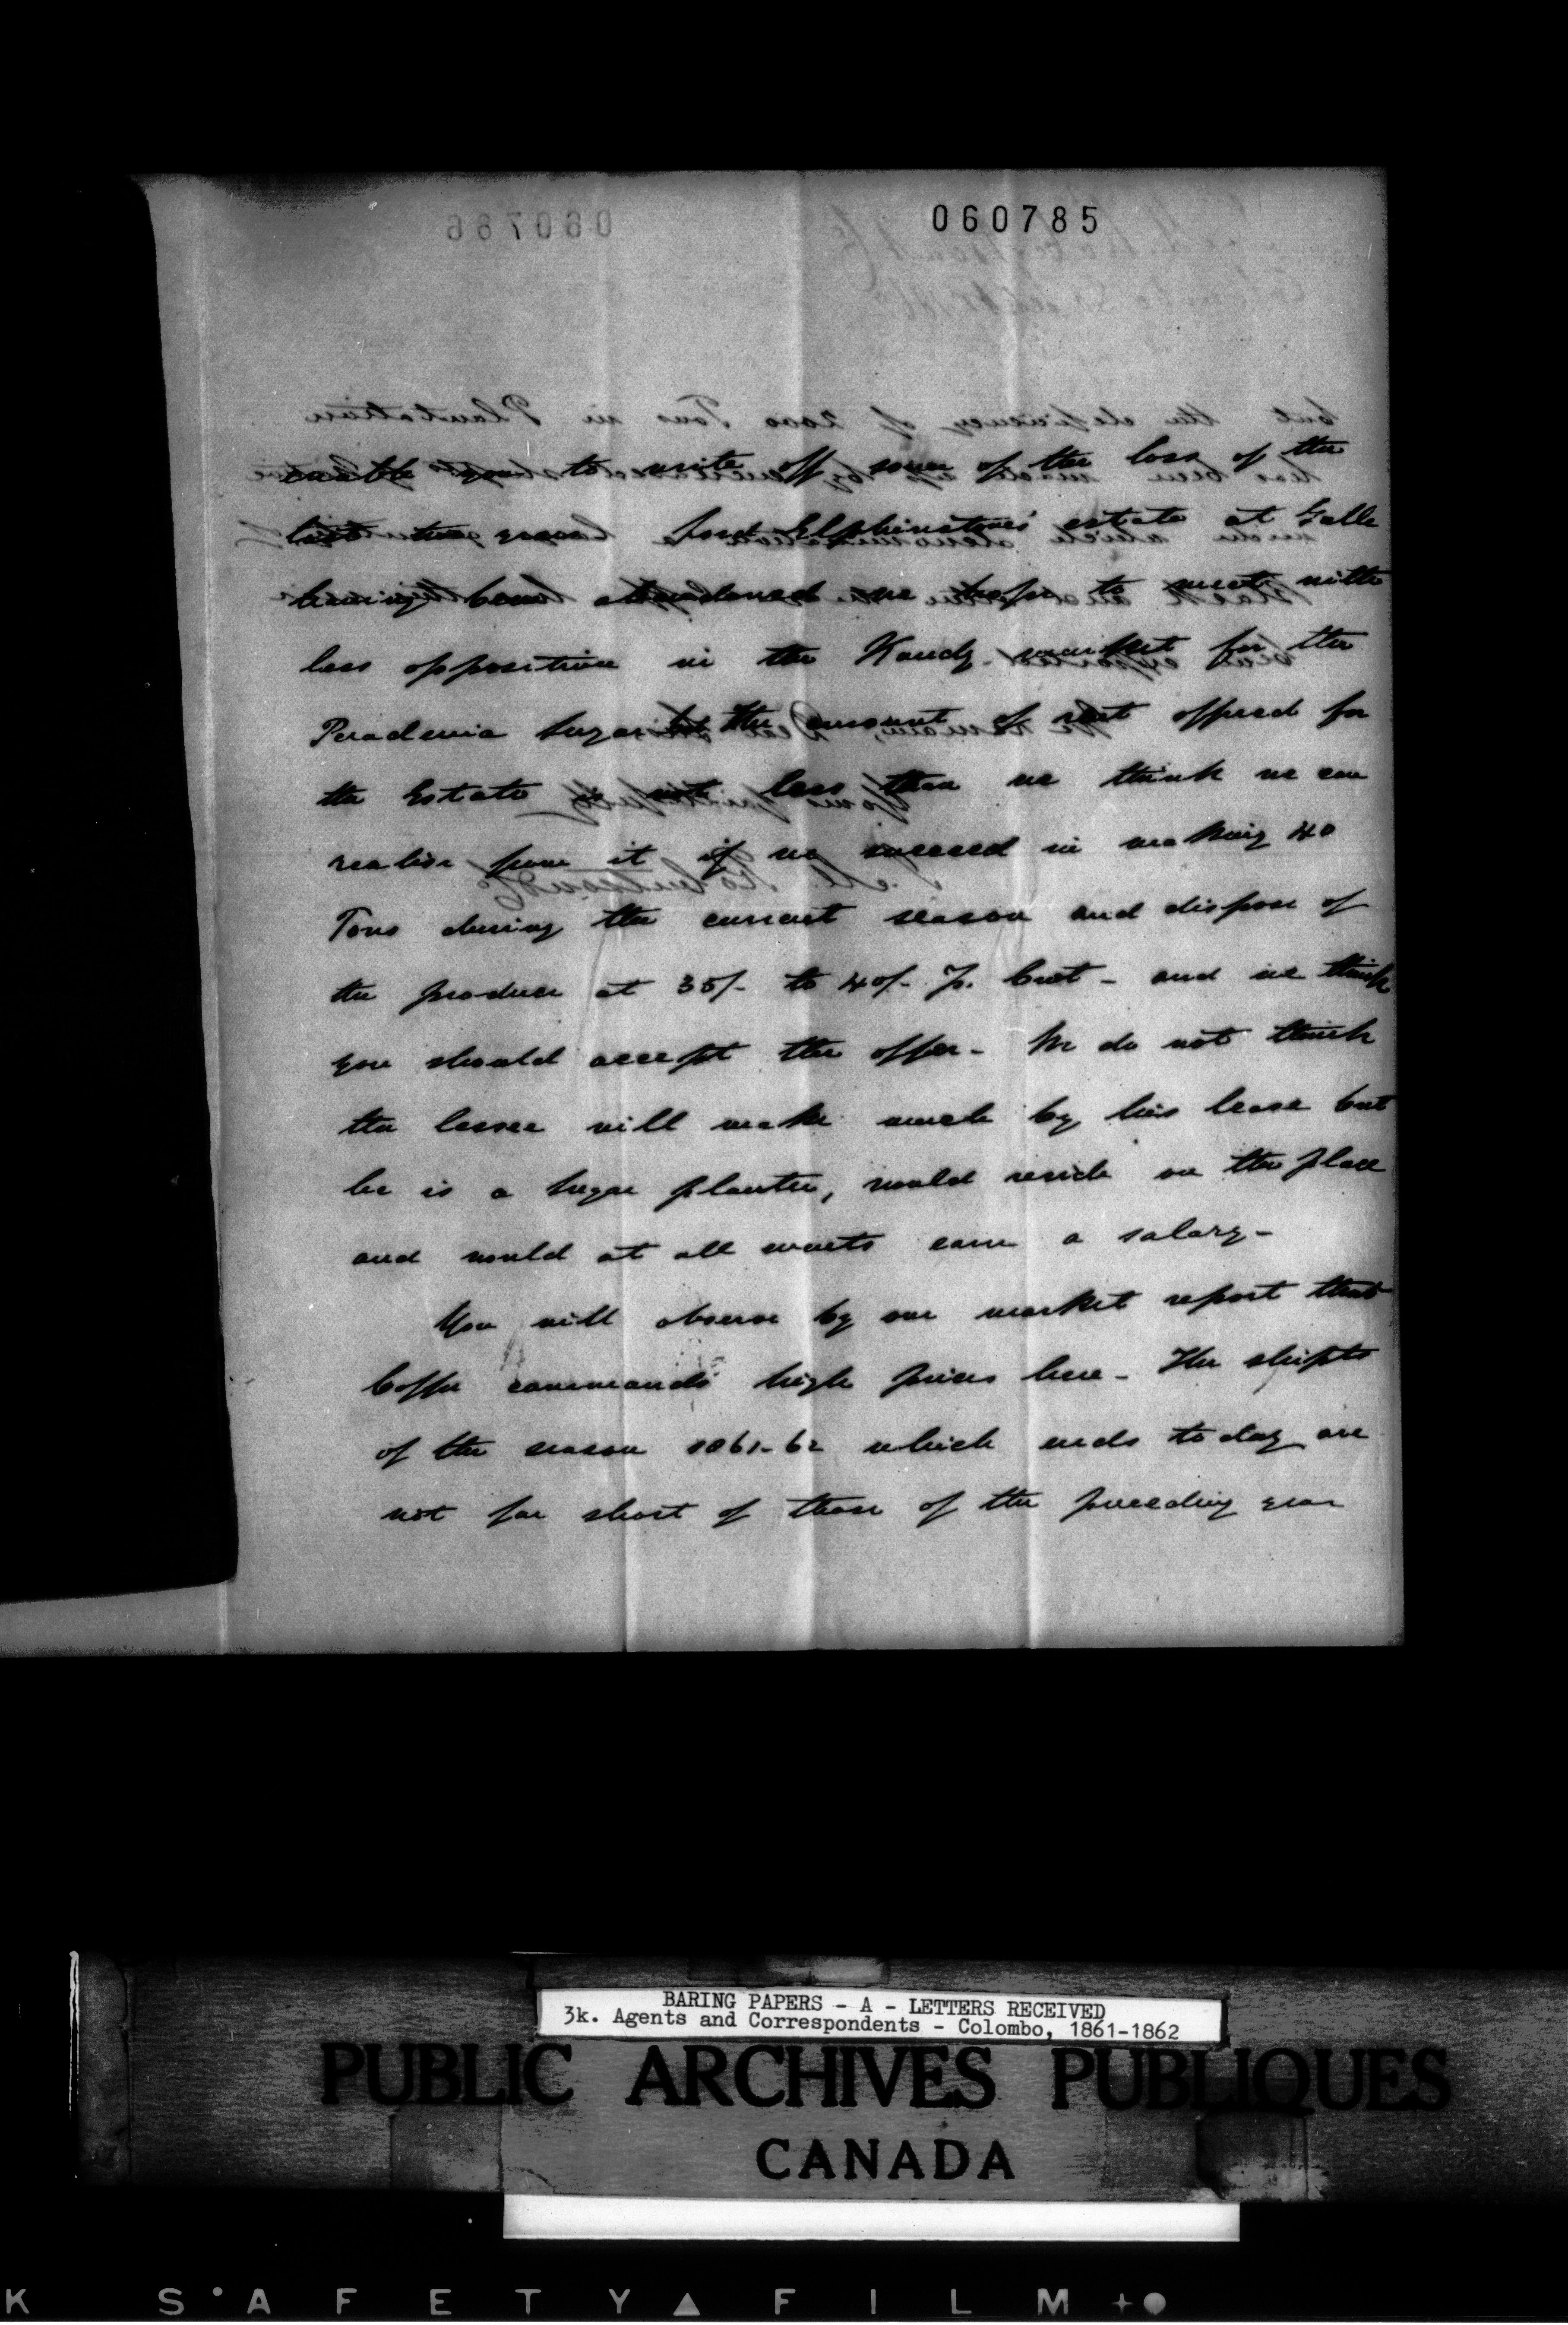 060785
enable you to write off some of the loss of the
last two years. Lord Elphinstones' estate at Galle
having been abandoned we hope to meet with
less opposition in the Kandy market for the
Peradenia Sugar. The amount of rent offered for
the Estate is not less than we think we can
realise from it if we succeed in making 40
Tons during the current season and dispose of
the produce at 35/- to 40/- p. Cwt - and we think
you should accept the offer - We do not think
the lessee will make much by his lease but
he is a sugar planter, would reside on the place
and would at all events earn a salary -
You will observe by our market report that
Coffee commands high prices here - The shipts
of the season 1861-62 which ends to day are
not far short of those of the preceding year
BARING PAPERS - A - LETTERS RECEIVED
3k. Agents and Correspondents - Colombo, 1861-1862
PUBLIC ARCHIVES PUBLIQUES
CANADA
K SAFETY FILM